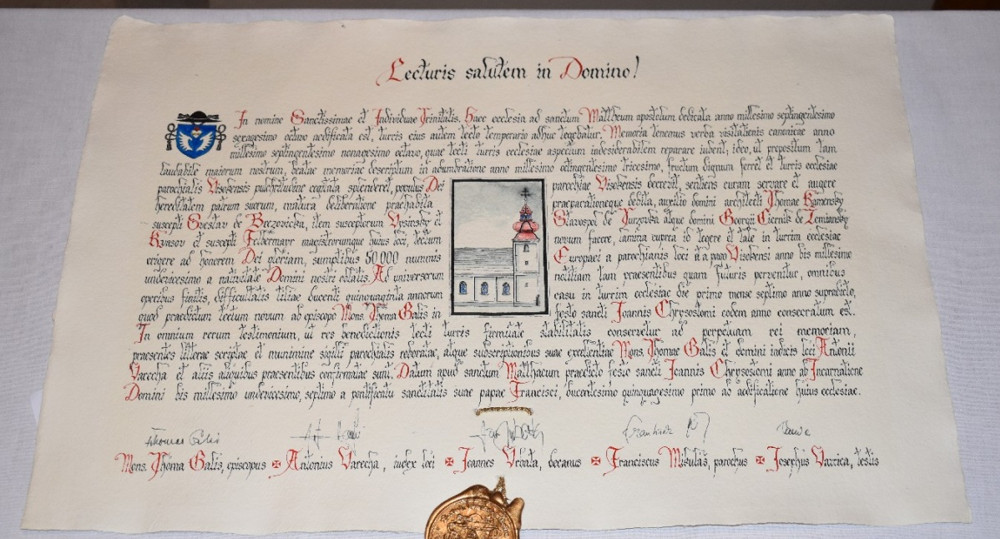 Lecturis salutem in Domino!
In nomine Sanctissimae et Individuae Trinitatis. Haec ecclesia ad sanctum Matthaeum apostolum dedicata anno millesimo septingentesimo
sexagesimo octavo aedificata est, turris eius autem tecto temporario adhuc tegebatur. Memoria tenemus verba visitationis canonicae anno
millesimo septingentesimo nonagesimo octavo, quae tecti turris ecclesiae aspectum indesiderabilem reparare iubent, ideo, ut propositum tam
laudabile maiorum nostrum, beatae memoriae descriptum in adumbratione anno millesimo octingentesimo tricesimo, fructum dignum ferret et turris ecclesiae
parochialis Visokensis pulchritudine capitata splenderet, populus Dei
hereditatem patrum suorum, matura deliberatione praehabita
suscepti Goeslav de Brezovicka, item susceptorum Vysinsky et
Krasov et suscepti Felbermayr magistrorumque huius loci, tectum
erigere ad honorem Dei gloriam, sumptibus 50 000 nummis
undevicesimo a nativitate Domini nostri oblatis. Ad universorum
operibus finitis, difficultatis ducenti quinquaginta annorum
quod praedictum tectum novum ab episcopo Mons. Thoma Galis in
parochiae Visokensis accessit, sentiens curam servare et augere
praeparationeque debita, auxilio domini architecti Thomae Kamensky
de Turzovka atque domini Georgii Ciernik de Zemiansky
novum facere, lamina cuprea id tegere et tale in turrim ecclesiae
Europaei a parochianis loci et a pago Visokensi anno bis millesimo
notitiam tam praesentibus quam futuris pervenitur, omnibus
casu in turrim ecclesiae die primo mense septimo anno supradicto,
festo sancti Joannis Chrysostomi eodem anno consecratum est.
In omnium rerum testimonium, ut res benedictionis tecti turris firmitate stabilitatis conservetur ad perpetuam rei memoriam,
praesentes litterae scriptae et munimine sigilli parochialis roboratae, atque subscriptionibus suae excellentiae Mons. Thomae Galis et domini iudicis loci Antonii
Varecha et aliis aliquibus praesentibus confirmatae sunt. Datum apud sanctum Matthaeum praedicto festo sancti Joannis Chrysostomi anno ab Incarnatione
Domini bis millesimo undevicesimo, septimo a pontificatu sanctitatis suae papae Francisci, ducentesimo quinquagesimo primo ab aedificatione huius ecclesiae.
Mons. Thoma Galis, episcopus Antonius Varecha, iudex loci Joannes Vrbata, decanus Franciscus Mikulas, parochus Josephus Varrica, testis